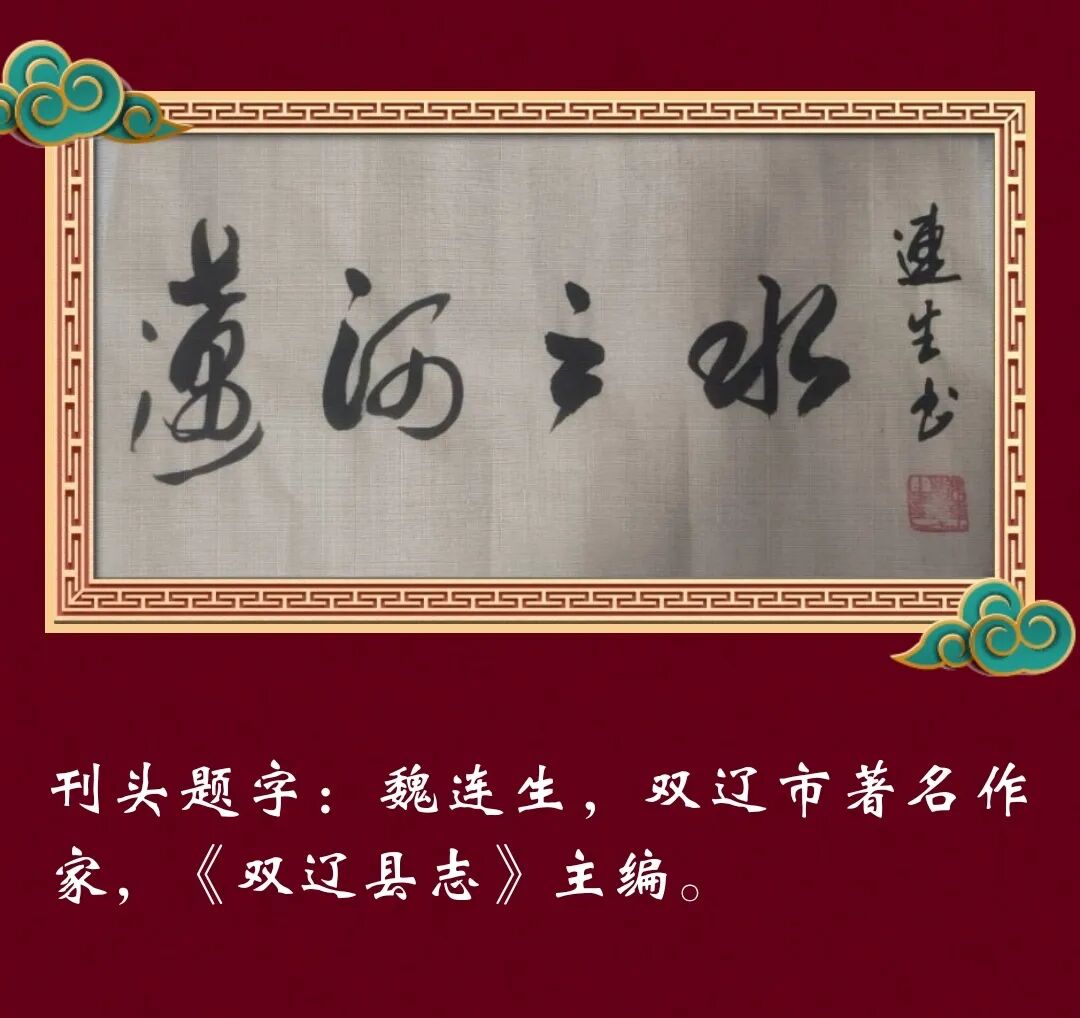 遼河之水
連生书
刊头题字：魏连生，双辽市著名作
家，《双辽县志》主编。